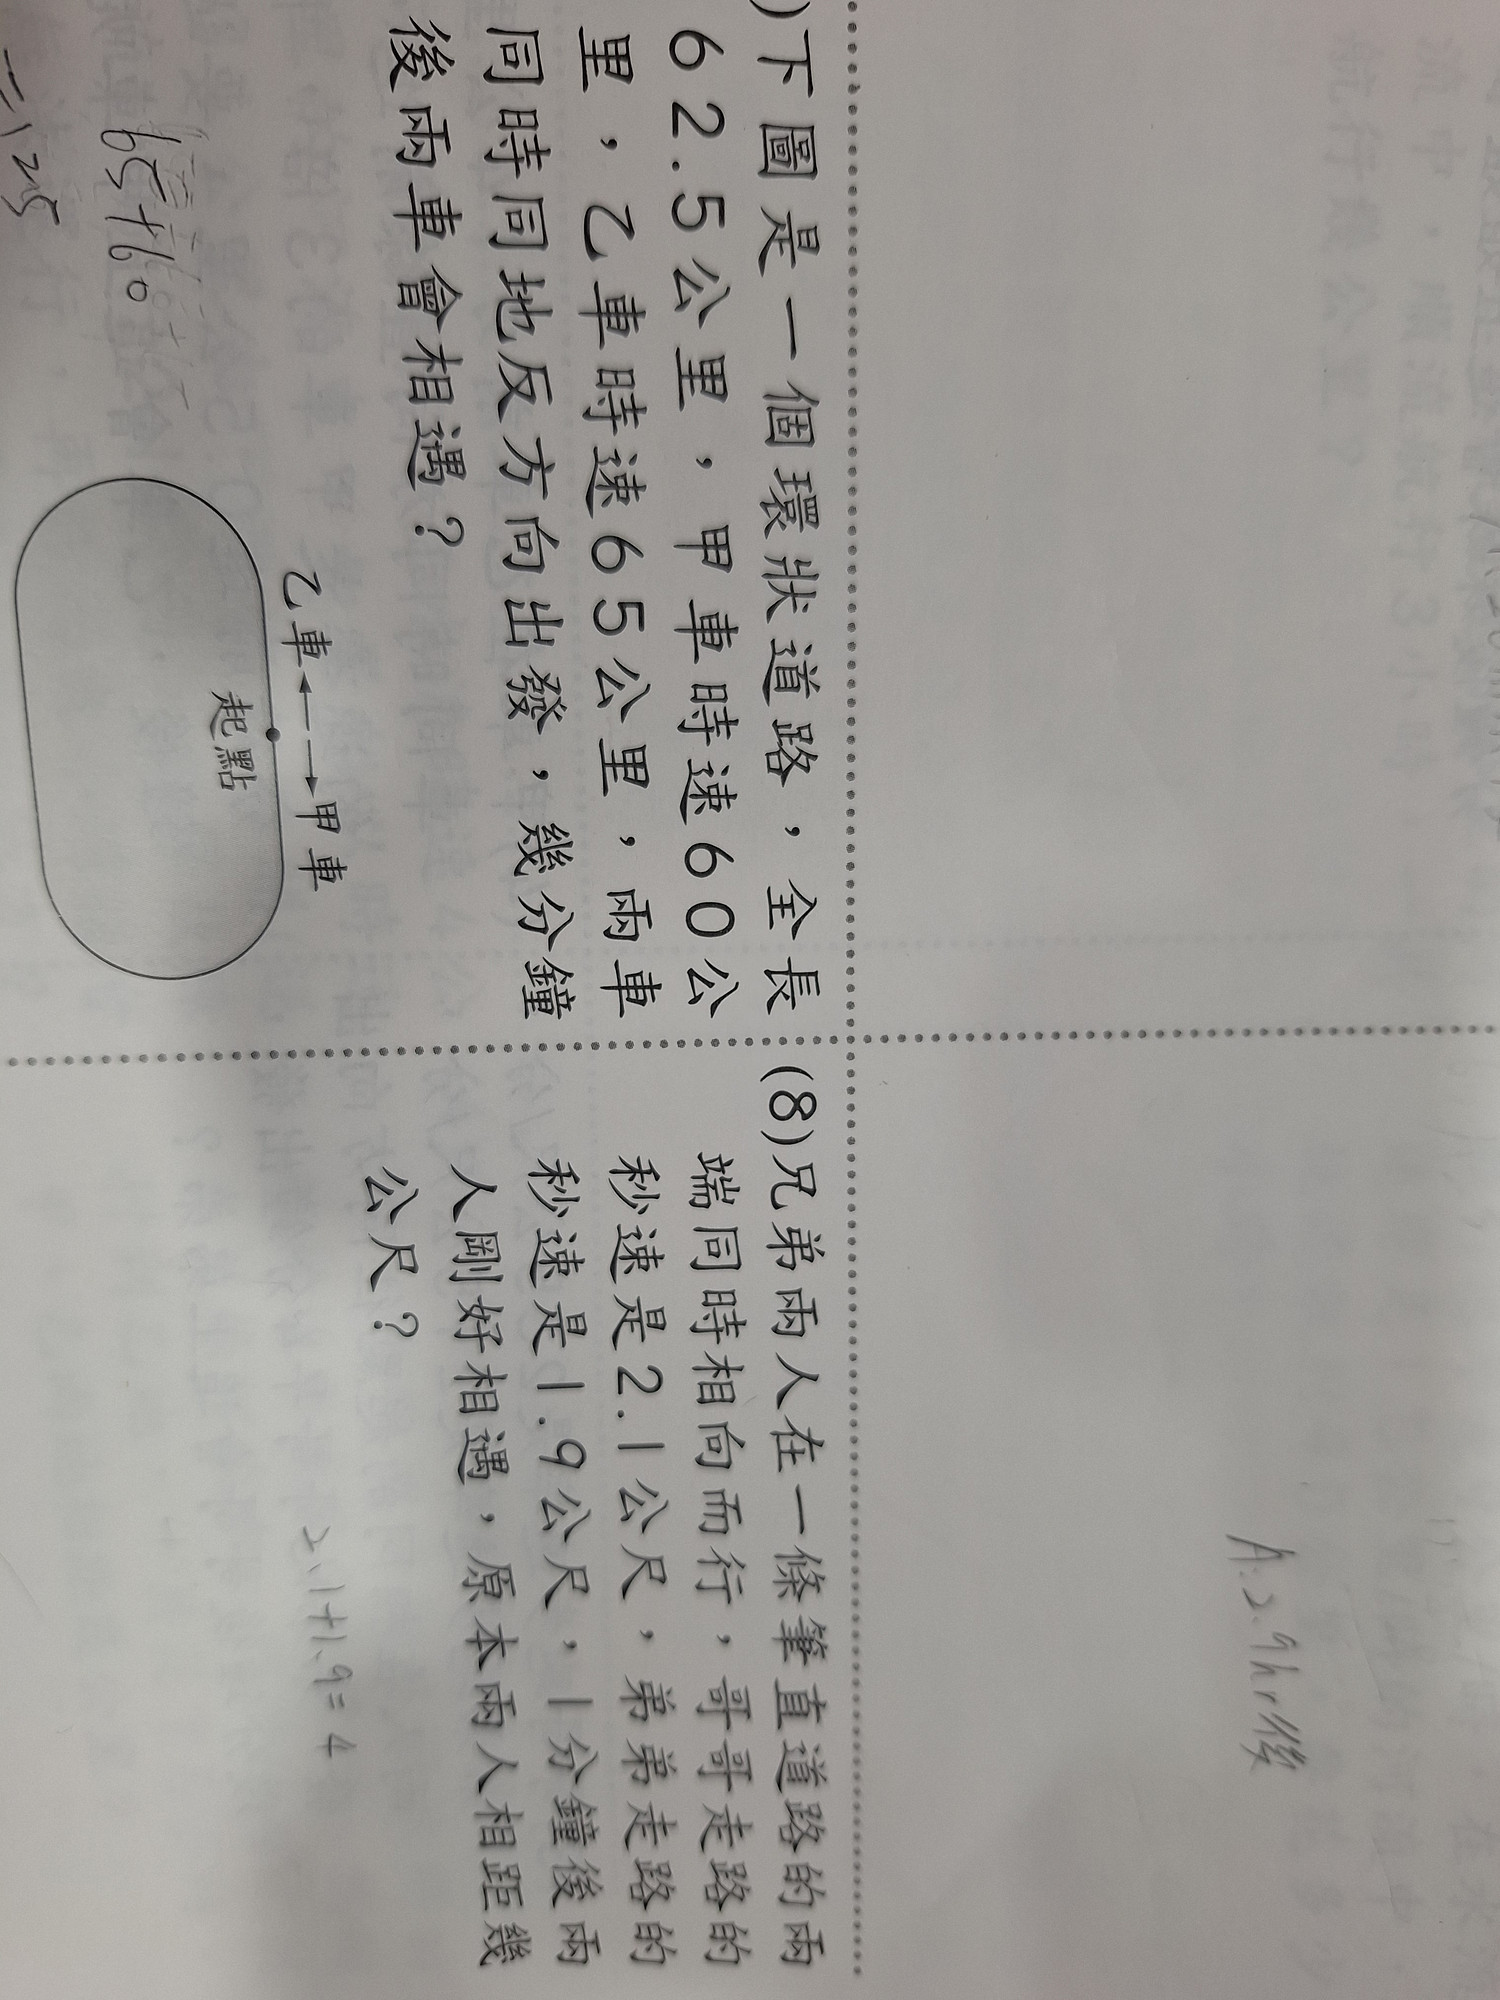 A: 2.9hr後
)下圖是一個環狀道路，全長
62.5公里，甲車時速60公
里，乙車時速65公里，兩車
同時同地反方向出發，幾分鐘
後兩車會相遇？
乙車←—→甲車
起點
65+60
=125
(8)兄弟兩人在一條筆直道路的兩
端同時相向而行，哥哥走路的
秒速是2.1公尺，弟弟走路的
秒速是1.9公尺，1分鐘後兩
人剛好相遇，原本兩人相距幾
公尺？
2.1+1.9=4